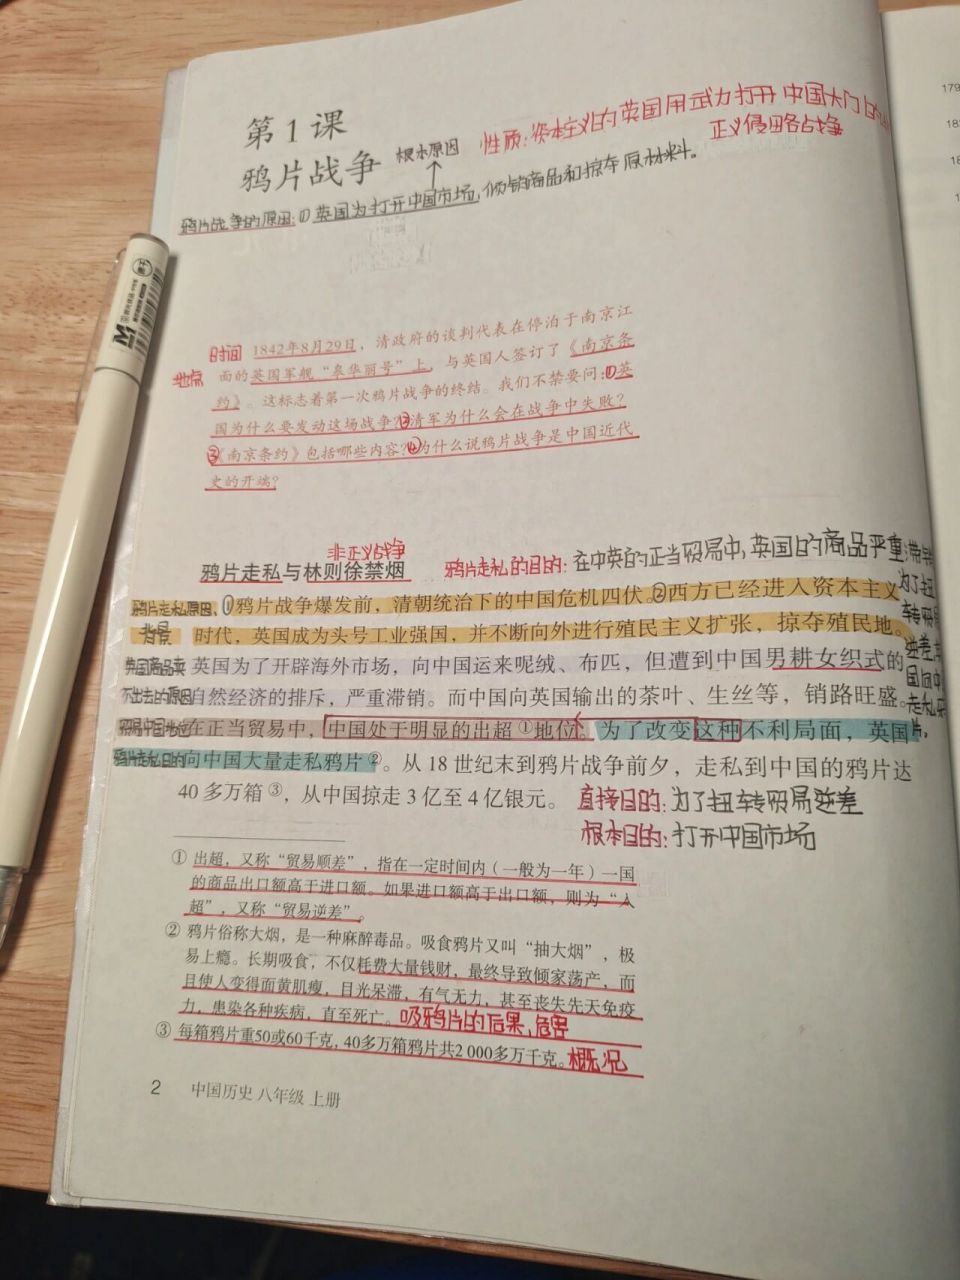 第1课
鸦片战争
根本原因
性质：资本主义的英国用武力打开中国大门的
正义侵略战争
鸦片战争的原因：①英国为打开中国市场，倾销商品和掠夺原材料。
时间
1842年8月29日，清政府的谈判代表在停泊于南京江
面的英国军舰“皋华丽号”上，与英国人签订了《南京条
约》。这标志着第一次鸦片战争的终结。我们不禁要问：①英
国为什么要发动这场战争？②清军为什么会在战争中失败？
③《南京条约》包括哪些内容？④为什么说鸦片战争是中国近代
史的开端？
非正义战争
鸦片走私与林则徐禁烟
鸦片走私的目的：在中英的正当贸易中，英国的商品严重滞销
为了扭
转贸易
逆差，
鸦片走私原因，
背景
①鸦片战争爆发前，清朝统治下的中国危机四伏。②西方已经进入资本主义
时代，英国成为头号工业强国，并不断向外进行殖民主义扩张，掠夺殖民地。
英国商品卖
不出去的原因
英国为了开辟海外市场，向中国运来呢绒、布匹，但遭到中国男耕女织式的
自然经济的排斥，严重滞销。而中国向英国输出的茶叶、生丝等，销路旺盛。
贸易中国地位
在正当贸易中，中国处于明显的出超①地位。为了改变这种不利局面，英国
鸦片走私目的
向中国大量走私鸦片②。从18世纪末到鸦片战争前夕，走私到中国的鸦片达
40多万箱③，从中国掠走3亿至4亿银元。
直接目的：为了扭转贸易逆差
根本目的：打开中国市场
① 出超，又称“贸易顺差”，指在一定时间内（一般为一年）一国
的商品出口额高于进口额。如果进口额高于出口额，则为“入
超”，又称“贸易逆差”。
② 鸦片俗称大烟，是一种麻醉毒品。吸食鸦片又叫“抽大烟”，极
易上瘾。长期吸食，不仅耗费大量钱财，最终导致倾家荡产，而
且使人变得面黄肌瘦，目光呆滞，有气无力，甚至丧失先天免疫
力，患染各种疾病，直至死亡。吸鸦片的后果，危害
③ 每箱鸦片重50或60千克，40多万箱鸦片共2 000多万千克。概况
2 中国历史 八年级 上册
M&G
179